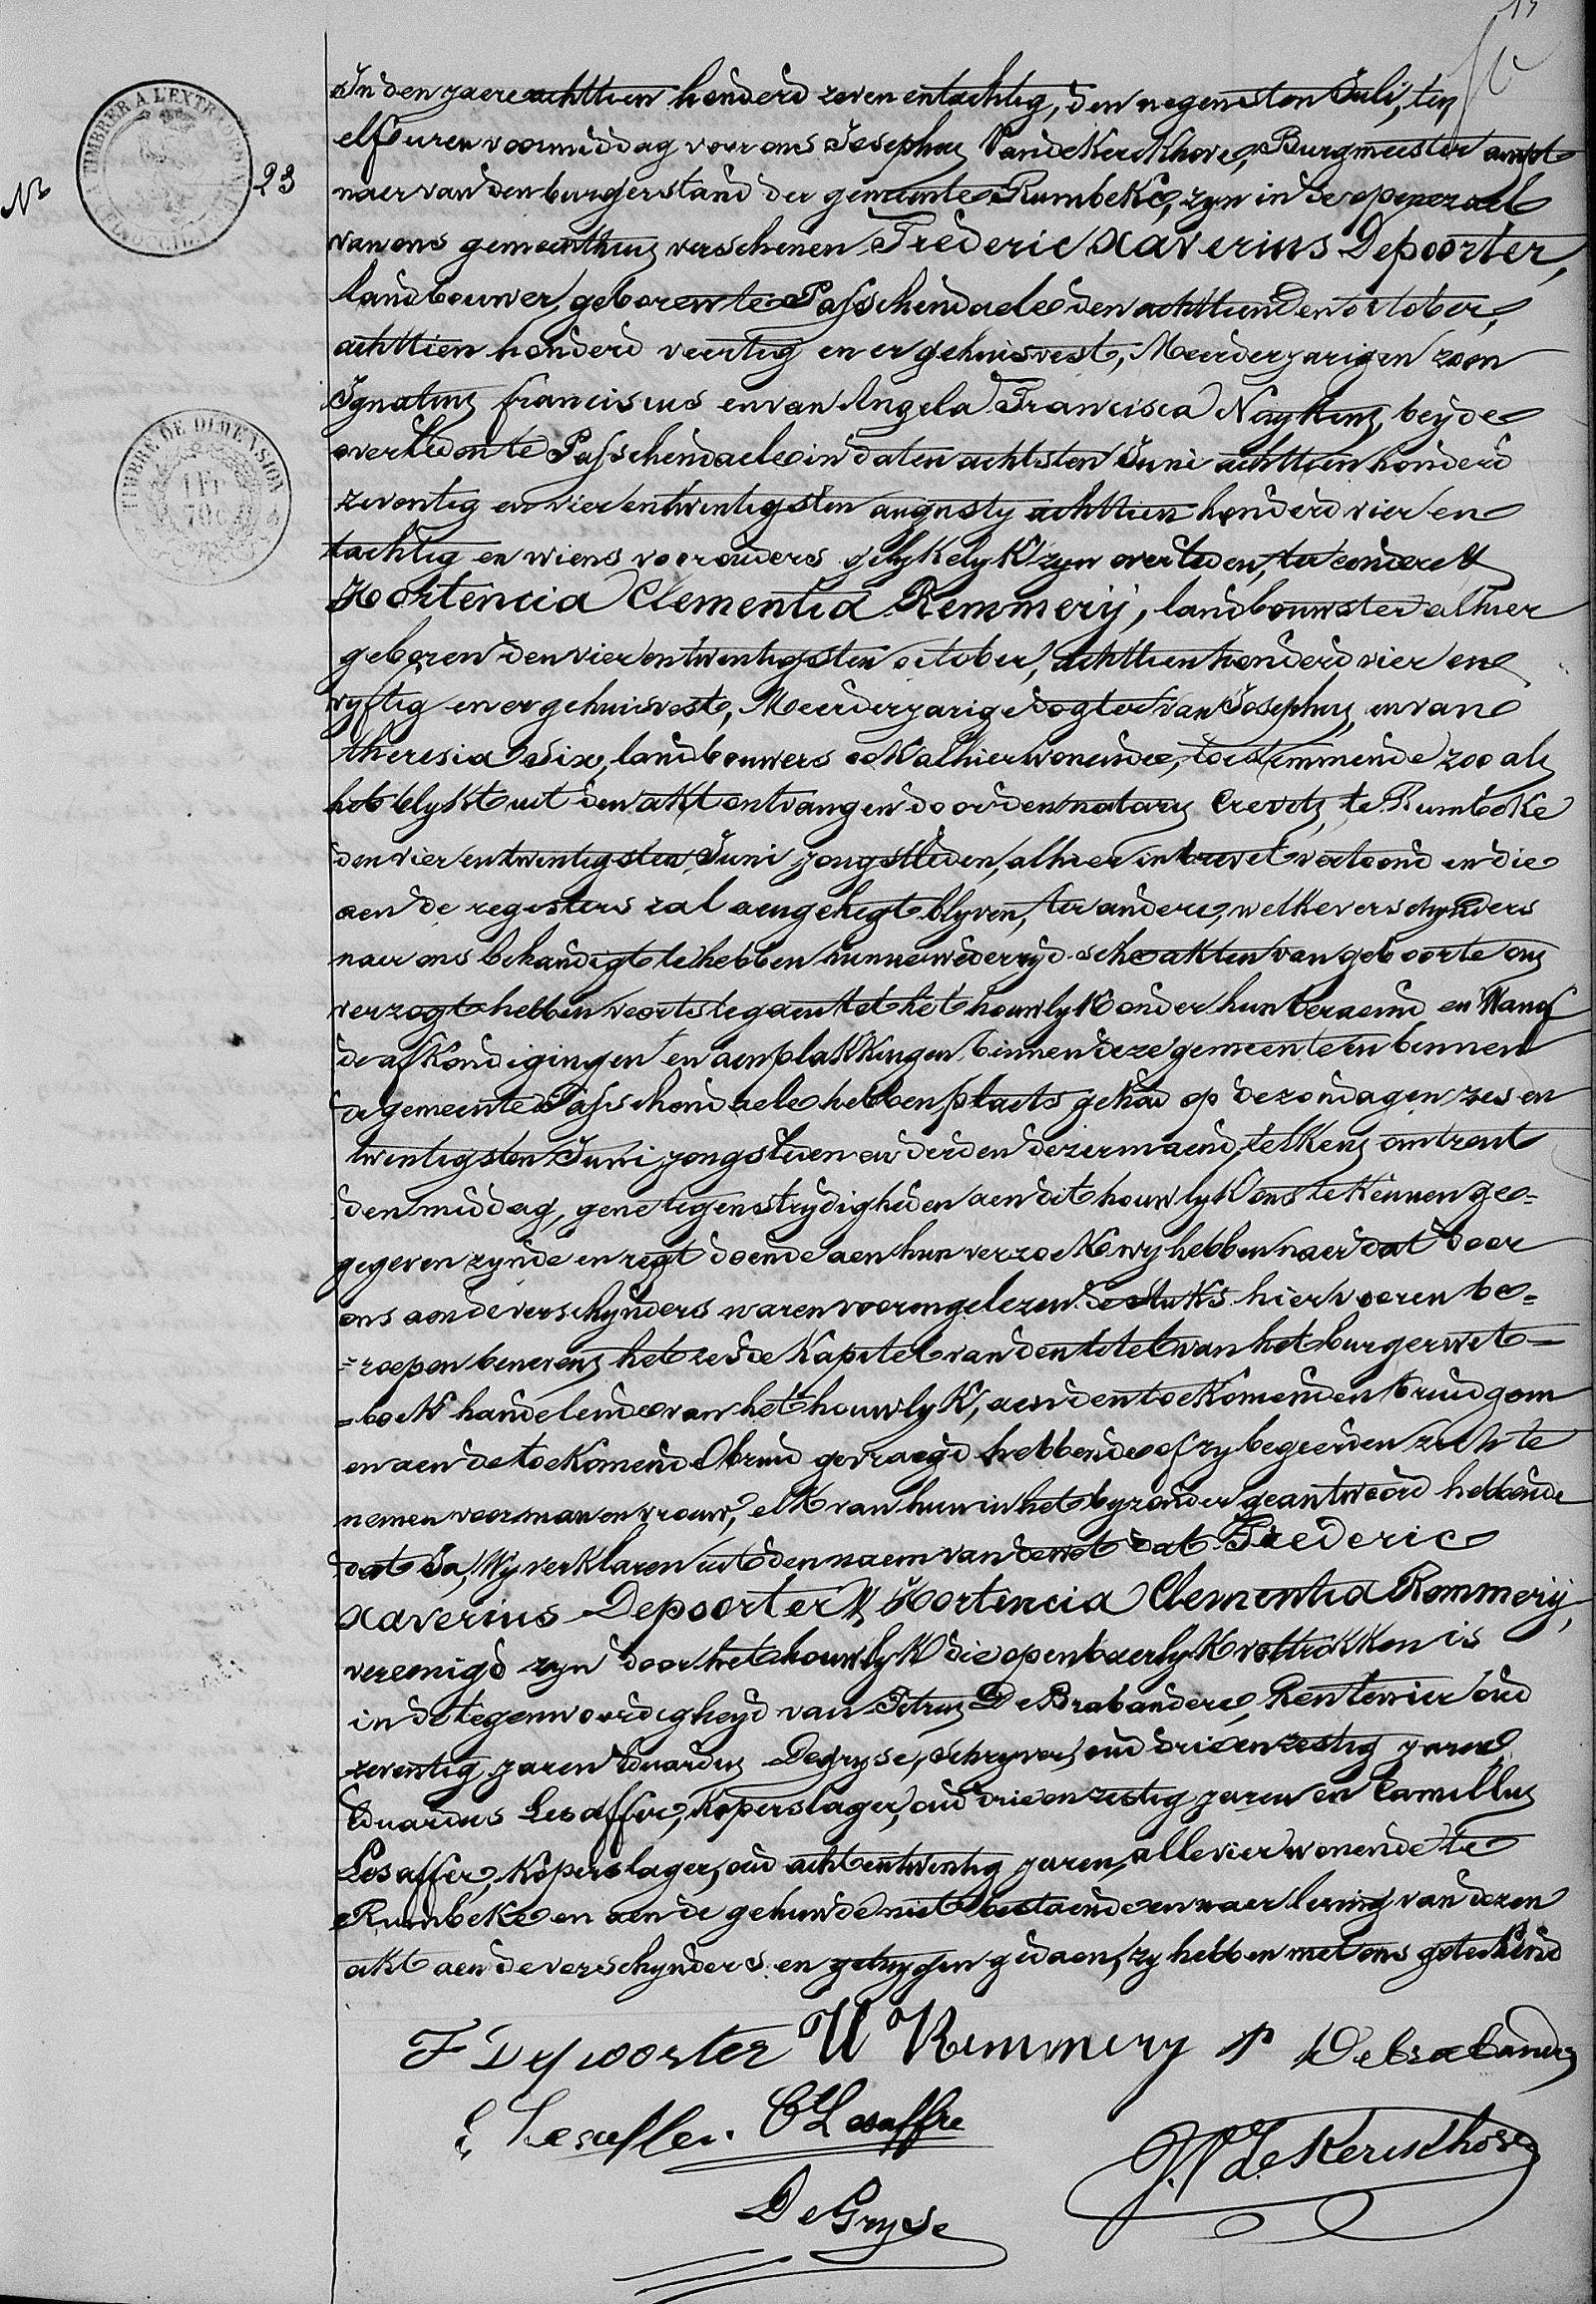 13
A TIMBRER A L'EXTRAORDIN
No 23
TIMBRE DE DIMENSION
1 Fr
70 c
In den jaere achttien honderd zeven entachtig, den negensten Juli, ten
elf uren voormiddag voor ons Josephus Vandekerckhove, Burgmeester ampt
naer van den burgerstand der gemeente Rumbeke, zyn in de opene zael
van ons gemeenthuis verschenen Frederic Xaverius Depoorter,
landbouwer, geboren te Passchendaele den achttienden october,
achttien honderd veertig en er gehuisvest, Meerderjarigen zoon
Ignatius franciscus en van Angela Francisca Nuyttens, beyde
overleden te Passchendaele in daten achtsten Juni achttien honderd
zeventig en vier entwintigsten augusty achttien honderd vier en
tachtig en wiens voorouders gelykelyk zyn overleden, ter eender &
Hortencia Clementia Remmerij, landbouwster alhier
geboren den vier entwintigsten october, achttien honderd vier en
vyftig en er gehuisvest, Meerderjarige dogter van Josephus, en van
theresia Six, landbouwers ook alhier wonende, toestemmende zoo als
het blykt uit den akt ontvangen door den notarys Crevits, te Rumbeke
den vier entwintigsten Juni jongstleden, alhier in brevet vertoond en die
aen de registers zal aengehegt blyven, ter andere, welke verschynders
naer ons behandigt te hebben hunne wederzyd-sche akten van geboorte ons
verzogt hebben voorts te gaen tot het houwlyk onder hun beraemd en Wanof
de afkondigingen en aenplakkingen binnen deze gemeente en binnen
de gemeente Passchendaele hebben plaets gehad op de zondagen zes en
twintigsten Juni jongstleden en derden dezer maend, telkens omtrent
den middag, gene tegenstrydigheden aen dit houwlyk ons te kennen ge=
gegeven zynde en regt doende aen hun verzoek wy hebben naer dat door
ons aen de verschynders waren voorengelezen de stuks hiervooren be=
=roepen benevens het zesde Kapitel van den titel van het burgerwet=
=boek handelende van het houwlyk, aen den toekomenden bruidgom
en aen de toekomende bruid gevraegd hebbende of zy begeerden zich te
nemen voor man en vrouw, elk van hun in het byzonder geantwoord hebbende
dat Ja, Wy verklaren uit den naem van de wet dat Frederic
Xaverius Depoorter & Hortencia Clementia Remmerij,
vereenigd zyn door het houwlyk die openbaerlyk voltrokken is
in de tegenwoordigheyd van Petrus De Brabandere, Rentenier oud
zeventig jaren Eduardus Degryse, schryver, oud drieenzestig jaren
Eduardus Lesaffre, Koperslager, oud drieenzestig jaren en Camillus
Lesaffre, Koperslager, oud acht entwintig jaren, alle vier wonende te
Rumbeke en aen de gehuwde niet bestaende en naer lezing van dezen
akt aen de verschynders en getuygen gedaen, zy hebben met ons geteekend
F Depoorter H Remmery P Debrabander
E Lesaffre. C Lesaffre
J. VdeKerckhove
DeGryse